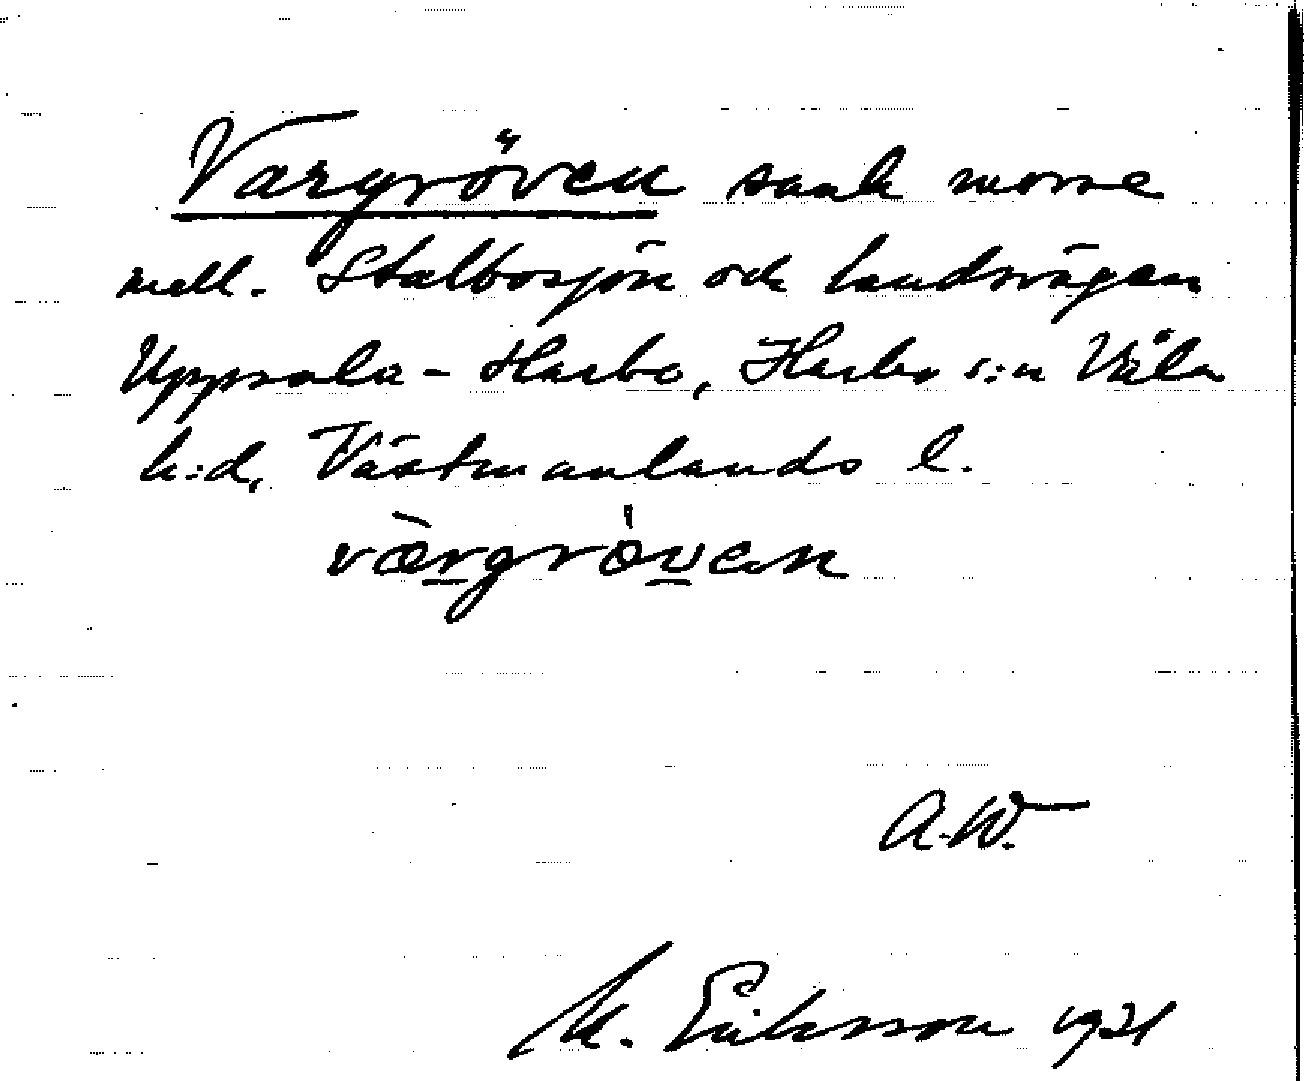 Vargröven sank mosse
mell. Stalbosjön och landsvägen
Uppsala - Harbo, Harbo s:n Våla
h:d, Västmanlands l.
værgröven
A.W.
M. Eriksson 1931